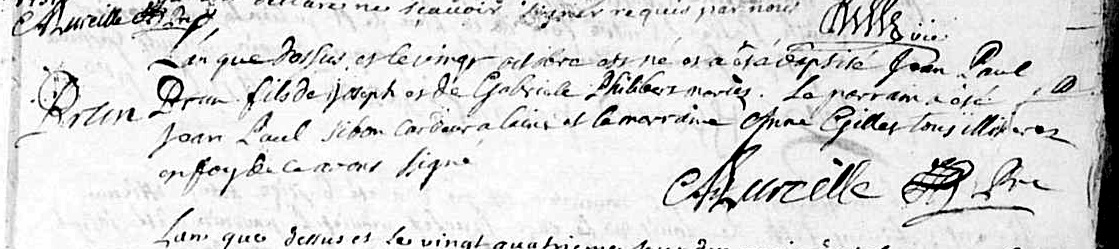 declaré ne sçavoir signer requis par nous
Aureille ptre vic.
L'an que dessus et le vingt octobre est né et a été baptisé Jean Paul
Brun Brun fils de Joseph et de Gabriele Philibert mariés. Le parrain a été
Jean Paul Sibon cardeur a laine et la marraine Anne Gilles tous illiteres
en foy de ce avons signé
Aureille ptre
L'an que dessus et le vingt quatrieme